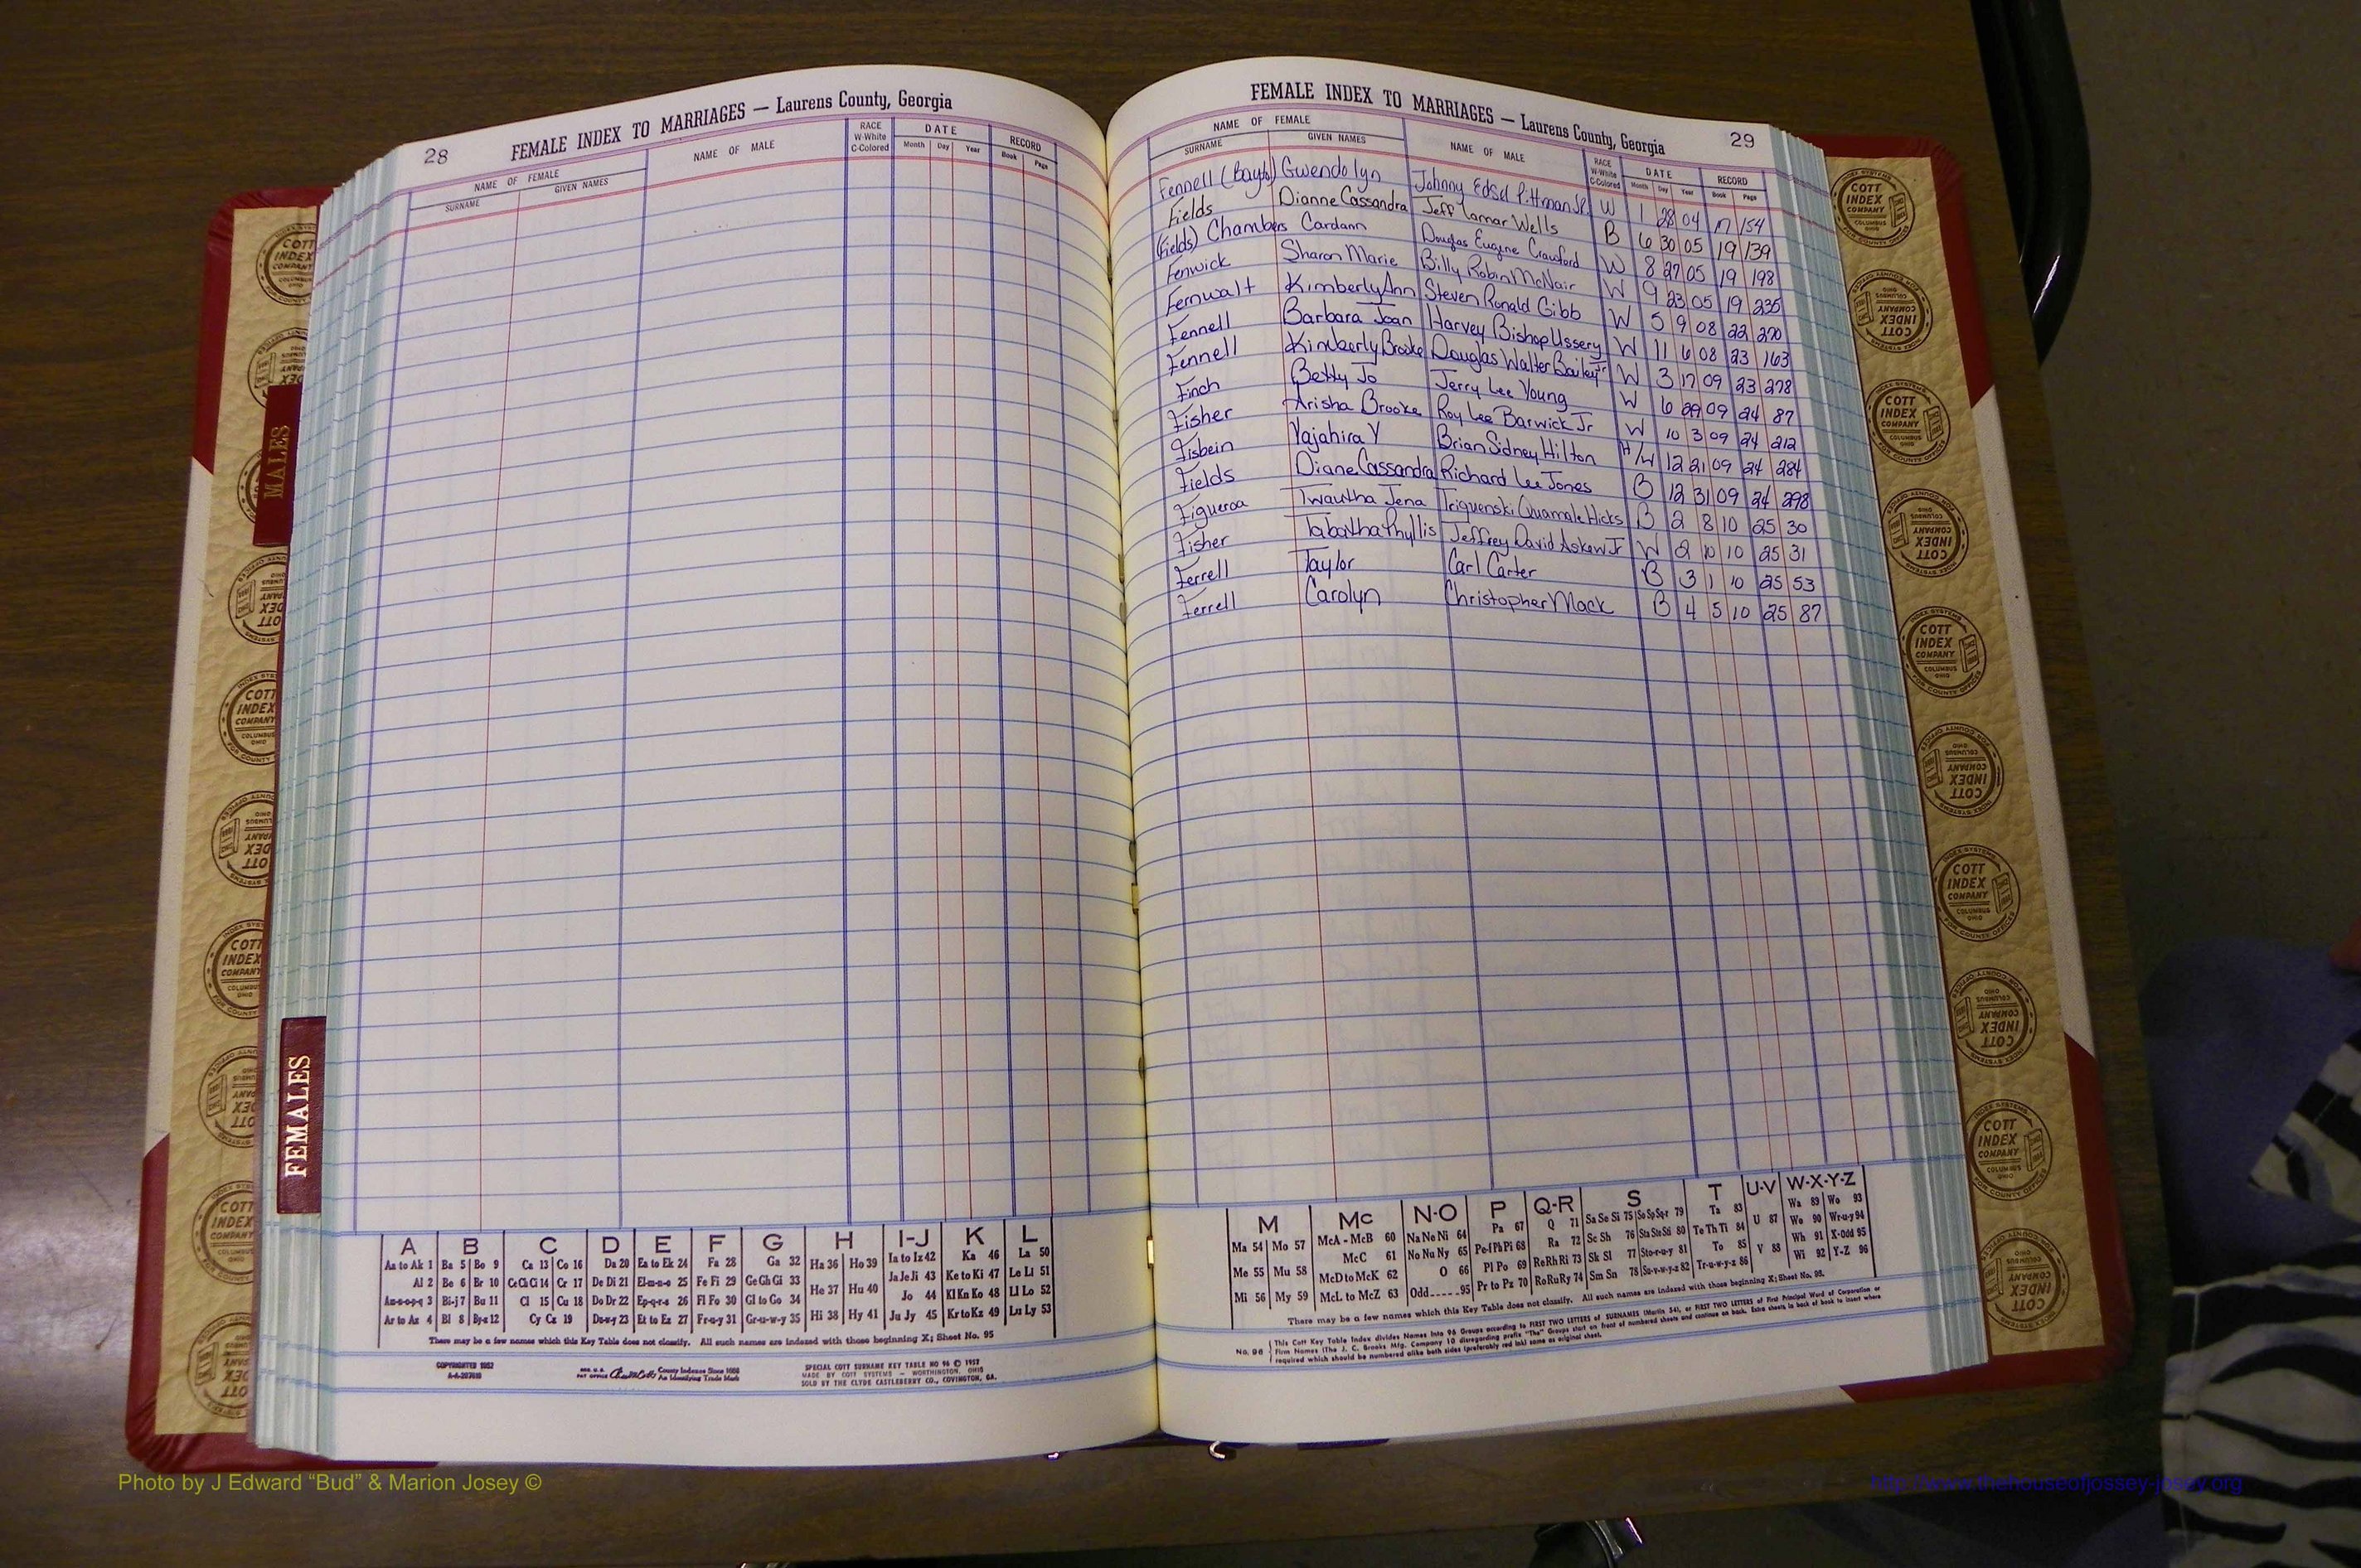 28
FEMALE INDEX TO MARRIAGES — Laurens County, Georgia
NAME OF FEMALE
SURNAME GIVEN NAMES
NAME OF MALE
RACE
W-White
C-Colored
DATE
Month Day Year
RECORD
Book Page
FEMALE INDEX TO MARRIAGES — Laurens County, Georgia
29
NAME OF FEMALE
SURNAME GIVEN NAMES
NAME OF MALE
RACE
W-White
C-Colored
DATE
Month Day Year
RECORD
Book Page
Fennell Gwendolyn Johnny Edsel Pittman Jr. W 1 28 04 17 154
Fields Dianne Cassandra Jeff Lamar Wells B 6 30 05 19 139
(Fields) Chambers Cardann Douglas Eugene Crawford W 8 27 05 19 198
Fenwick Sharon Marie Billy Robin McNair W 9 23 05 19 235
Fernwalt Kimberly Ann Steven Ronald Gibb W 5 9 08 22 270
Fennell Barbara Joan Harvey Bishop Ussery W 11 6 08 23 163
Fennell Kimberly Brooke Douglas Walter Bailey Jr W 3 17 09 23 278
Finch Betty Jo Jerry Lee Young W 6 29 09 24 87
Fisher Arisha Brooke Roy Lee Barwick Jr W 10 3 09 24 212
Fisbein Yajahira Y Brian Sidney Hilton H/W 12 21 09 24 284
Fields Diane Cassandra Richard Lee Jones B 12 31 09 24 298
Figueroa Twautha Jena Triquenski Quamale Hicks B 2 8 10 25 30
Fisher Tabatha Phyllis Jeffrey David Askew Jr W 2 10 10 25 31
Ferrell Taylor Carl Carter B 3 1 10 25 53
Ferrell Carolyn Christopher Mack B 4 5 10 25 87
MALES
FEMALES
COTT INDEX COMPANY
COLUMBUS OHIO
INDEX SYSTEMS FOR COUNTY OFFICES
A B C D E F G H I-J K L
Aa to Ak 1 Ba 5 Bo 9 Ca 13 Co 16 Da 20 Ea to Ek 24 Fa 28 Ga 32 Ha 36 Ho 39 Ia to Iz 42 Ka 46 La 50
Al 2 Be 6 Br 10 Ce Ch Ci 14 Cr 17 De Di 21 El-m-n-o 25 Fe Fi 29 Ge Gh Gi 33 He 37 Hu 40 Ja Je Ji 43 Ke to Ki 47 Le Li 51
Am-n-o-p-q 3 Bi-j 7 Bu 11 Cl 15 Cu 18 Do Dr 22 Ep-q-r-s 26 Fl Fo 30 Gl to Go 34 Jo 44 Kl Kn Ko 48 Ll Lo 52
Ar to Az 4 Bl 8 By-z 12 Cy Cz 19 Du-w-y 23 Et to Ez 27 Fr-u-y 31 Gr-u-w-y 35 Hi 38 Hy 41 Ju Jy 45 Kr to Kz 49 Lu Ly 53
There may be a few names which this Key Table does not classify. All such names are indexed with those beginning X; Sheet No. 95
COPYRIGHTED 1952
County Indexes Since 1888
An Identifying Trade Mark
SPECIAL COTT SURNAME KEY TABLE NO 96 © 1957
MADE BY COTT SYSTEMS — WORTHINGTON, OHIO
SOLD BY THE CLYDE CASTLEBERRY CO., COVINGTON, GA.
M Mc N-O P Q-R S T U-V W-X-Y-Z
Ma 54 Mo 57 McA - McB 60 Na Ne Ni 64 Pa 67 Q 71 Sa Se Si 75 So Sp Sq-r 79 Ta 83 U 87 Wa 89 Wo 93
Me 55 Mu 58 McC 61 No Nu Ny 65 Pe-f Ph Pi 68 Ra 72 Sc Sh 76 Sta Ste Sti 80 Te Th Ti 84 We 90 Wr-u-y 94
McD to McK 62 O 66 Pl Po 69 Re Rh Ri 73 Sk Sl 77 Sto-r-u-y 81 To 85 V 88 Wh 91 X-Odd 95
Mi 56 My 59 McL to McZ 63 Odd 95 Pr to Pz 70 Ro Ru Ry 74 Sm Sn 78 Su-v-w-y-z 82 Tr-u-w-y-z 86 Wi 92 Y-Z 96
There may be a few names which this Key Table does not classify. All such names are indexed with those beginning X; Sheet No. 95.
No. 96
This Cott Key Table Index divides Names into 96 Groups according to FIRST TWO LETTERS of SURNAMES (Martin 54), or FIRST TWO LETTERS of First Principal Word of Corporation or
Firm Names (The J. C. Brooks Mfg. Company 10 disregarding prefix "The" Groups start on front of numbered sheets and continue on back. Extra sheets in back of book to insert where
required which should be numbered alike both sides (preferably red ink) same as original sheet.
Photo by J Edward “Bud” & Marion Josey ©
http://www.thehouseofjossey-josey.org